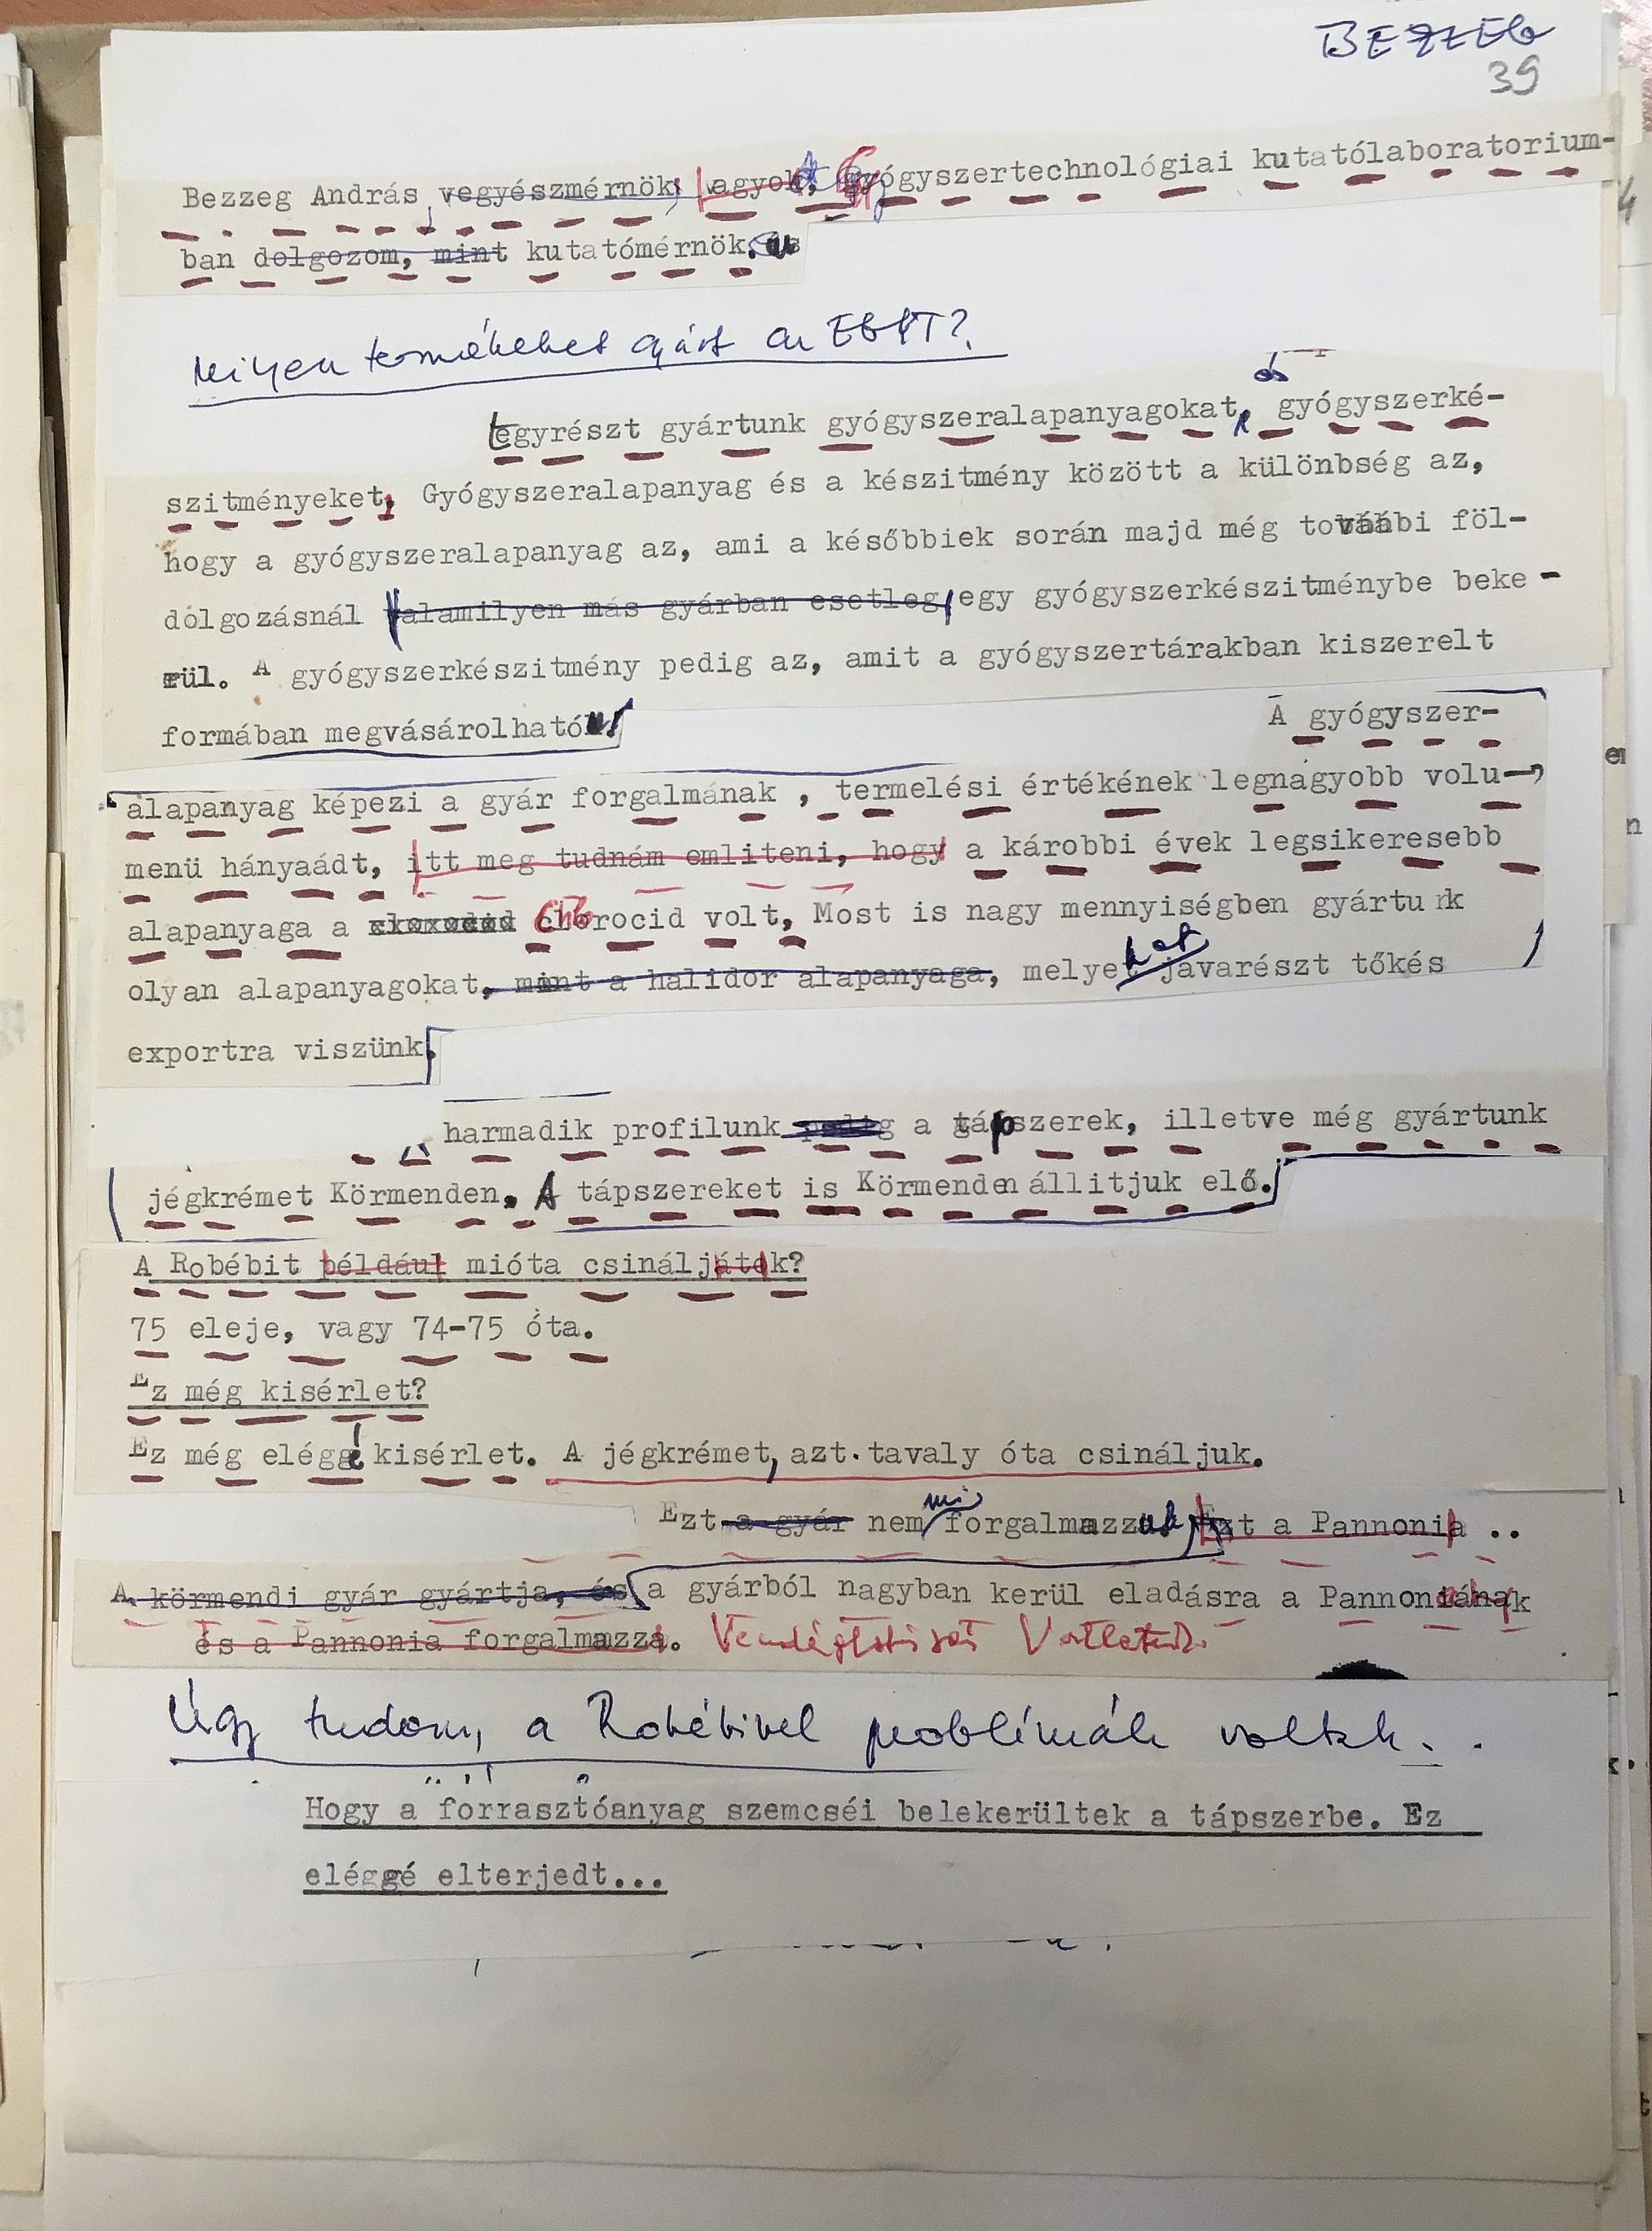 BEZZEG
39
Bezzeg András vegyészmérnök, vagyok, gyógyszertechnológiai kutatólaboratorium-
ban dolgozom, mint kutatómérnök.
Milyen termékeket gyárt az EGYT?
egyrészt gyártunk gyógyszeralapanyagokat, gyógyszerké-
szitményeket, Gyógyszeralapanyag és a készitmény között a különbség az,
hogy a gyógyszeralapanyag az, ami a későbbiek során majd még további föl-
dolgozásnál valamilyen más gyárban esetleg, egy gyógyszerkészitménybe beke-
rül. A gyógyszerkészitmény pedig az, amit a gyógyszertárakban kiszerelt
formában megvásárolható
A gyógyszer-
alapanyag képezi a gyár forgalmának , termelési értékének legnagyobb volu-
menü hányaádt, itt meg tudnám emliteni, hogy a károbbi évek legsikeresebb
alapanyaga a chlorocid volt, Most is nagy mennyiségben gyártunk
ket
olyan alapanyagokat, mint a halidor alapanyaga, melyek javarészt tőkés
exportra viszünk.
harmadik profilunk pedig a tápszerek, illetve még gyártunk
jégkrémet Körmenden. A tápszereket is Körmenden állitjuk elő.
A Robébit például mióta csináljátok?
75 eleje, vagy 74-75 óta.
Ez még kisérlet?
Ez még eléggé kisérlet. A jégkrémet, azt.tavaly óta csináljuk.
mi
Ezt a gyár nem forgalmazzuk, Ezt a Pannonia ..
A körmendi gyár gyártja, és a gyárból nagyban kerül eladásra a Pannoniának
és a Pannonia forgalmazza. Vendéglátóipari Vállalat
Úgy tudom, a Robébivel problémák voltak..
Hogy a forrasztóanyag szemcséi belekerültek a tápszerbe. Ez
eléggé elterjedt...